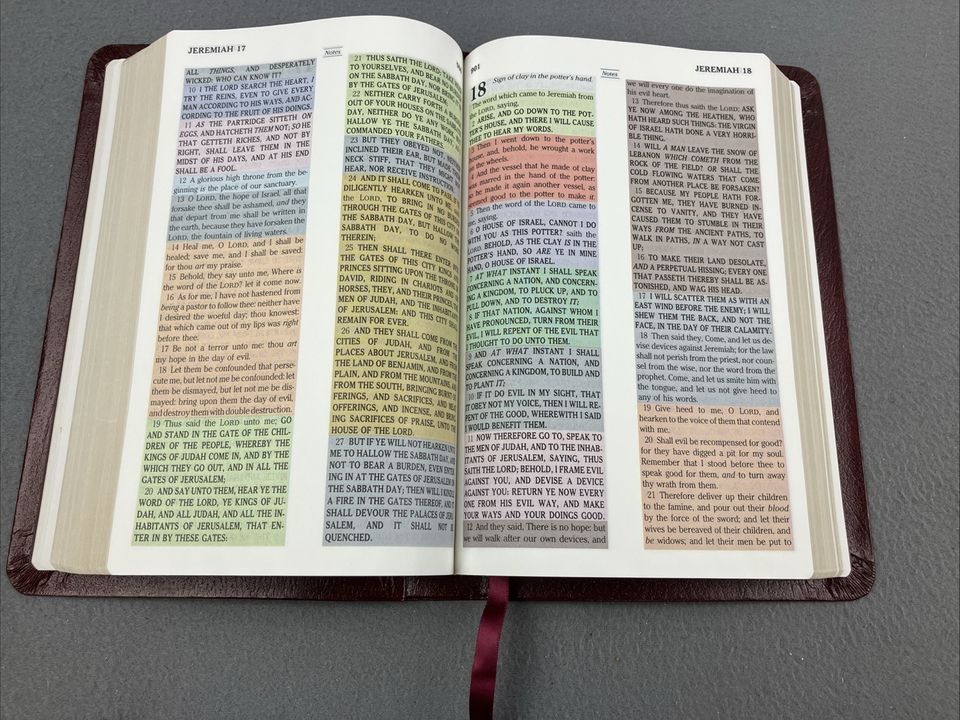 JEREMIAH 17
Notes
ALL THINGS, AND DESPERATELY
WICKED: WHO CAN KNOW IT?
10 I THE LORD SEARCH THE HEART, I
TRY THE REINS, EVEN TO GIVE EVERY
MAN ACCORDING TO HIS WAYS, AND AC-
CORDING TO THE FRUIT OF HIS DOINGS.
11 AS THE PARTRIDGE SITTETH ON
EGGS, AND HATCHETH THEM NOT; SO HE
THAT GETTETH RICHES, AND NOT BY
RIGHT, SHALL LEAVE THEM IN THE
MIDST OF HIS DAYS, AND AT HIS END
SHALL BE A FOOL.
12 A glorious high throne from the be-
ginning is the place of our sanctuary.
13 O LORD, the hope of Israel, all that
forsake thee shall be ashamed, and they
that depart from me shall be written in
the earth, because they have forsaken the
LORD, the fountain of living waters.
14 Heal me, O LORD, and I shall be
healed; save me, and I shall be saved:
for thou art my praise.
15 Behold, they say unto me, Where is
the word of the LORD? let it come now.
16 As for me, I have not hastened from
being a pastor to follow thee: neither have
I desired the woeful day; thou knowest:
that which came out of my lips was right
before thee.
17 Be not a terror unto me: thou art
my hope in the day of evil.
18 Let them be confounded that perse-
cute me, but let not me be confounded: let
them be dismayed, but let not me be dis-
mayed: bring upon them the day of evil,
and destroy them with double destruction.
19 Thus said the LORD unto me; GO
AND STAND IN THE GATE OF THE CHIL-
DREN OF THE PEOPLE, WHEREBY THE
KINGS OF JUDAH COME IN, AND BY THE
WHICH THEY GO OUT, AND IN ALL THE
GATES OF JERUSALEM;
20 AND SAY UNTO THEM, HEAR YE THE
WORD OF THE LORD, YE KINGS OF JU-
DAH, AND ALL JUDAH, AND ALL THE IN-
HABITANTS OF JERUSALEM, THAT EN-
TER IN BY THESE GATES:
21 THUS SAITH THE LORD; TAKE
TO YOURSELVES, AND BEAR NO
ON THE SABBATH DAY, NOR BRING
BY THE GATES OF JERUSALEM;
22 NEITHER CARRY FORTH A
OUT OF YOUR HOUSES ON THE
DAY, NEITHER DO YE ANY WORK,
HALLOW YE THE SABBATH DAY, AS
COMMANDED YOUR FATHERS.
23 BUT THEY OBEYED NOT,
INCLINED THEIR EAR, BUT MADE
NECK STIFF, THAT THEY MIGHT
HEAR, NOR RECEIVE INSTRUCTION.
24 AND IT SHALL COME TO PASS, IF
DILIGENTLY HEARKEN UNTO ME,
the LORD, TO BRING IN NO
THROUGH THE GATES OF THIS CITY
THE SABBATH DAY, BUT HALLOW
SABBATH DAY, TO DO NO
THEREIN;
25 THEN SHALL THERE ENTER
THE GATES OF THIS CITY KINGS
PRINCES SITTING UPON THE THRONE
DAVID, RIDING IN CHARIOTS AND
HORSES, THEY, AND THEIR PRINCES,
MEN OF JUDAH, AND THE INHABITANTS
OF JERUSALEM: AND THIS CITY SHALL
REMAIN FOR EVER.
26 AND THEY SHALL COME FROM
CITIES OF JUDAH, AND FROM
PLACES ABOUT JERUSALEM, AND FROM
THE LAND OF BENJAMIN, AND FROM
PLAIN, AND FROM THE MOUNTAINS, AND
FROM THE SOUTH, BRINGING BURNT
FERINGS, AND SACRIFICES, AND MEAT
OFFERINGS, AND INCENSE, AND BRING-
ING SACRIFICES OF PRAISE, UNTO THE
HOUSE OF THE LORD.
27 BUT IF YE WILL NOT HEARKEN UNTO
ME TO HALLOW THE SABBATH DAY, AND
NOT TO BEAR A BURDEN, EVEN ENTER-
ING IN AT THE GATES OF JERUSALEM ON
THE SABBATH DAY; THEN WILL I KINDLE
A FIRE IN THE GATES THEREOF, AND IT
SHALL DEVOUR THE PALACES OF JERU-
SALEM, AND IT SHALL NOT BE
QUENCHED.
901
JEREMIAH 18
Notes
18 Sign of clay in the potter's hand.
The word which came to Jeremiah from
the LORD, saying,
2 ARISE, AND GO DOWN TO THE POT-
TER'S HOUSE, AND THERE I WILL CAUSE
THEE TO HEAR MY WORDS.
3 Then I went down to the potter's
house, and, behold, he wrought a work
on the wheels.
4 And the vessel that he made of clay
was marred in the hand of the potter:
so he made it again another vessel, as
seemed good to the potter to make it.
5 Then the word of the LORD came to
me, saying,
6 O HOUSE OF ISRAEL, CANNOT I DO
WITH YOU AS THIS POTTER? saith the
LORD. BEHOLD, AS THE CLAY IS IN THE
POTTER'S HAND, SO ARE YE IN MINE
HAND, O HOUSE OF ISRAEL.
7 AT WHAT INSTANT I SHALL SPEAK
CONCERNING A NATION, AND CONCERN-
ING A KINGDOM, TO PLUCK UP, AND TO
PULL DOWN, AND TO DESTROY IT;
8 IF THAT NATION, AGAINST WHOM I
HAVE PRONOUNCED, TURN FROM THEIR
EVIL, I WILL REPENT OF THE EVIL THAT
I THOUGHT TO DO UNTO THEM.
9 AND AT WHAT INSTANT I SHALL
SPEAK CONCERNING A NATION, AND
CONCERNING A KINGDOM, TO BUILD AND
TO PLANT IT;
10 IF IT DO EVIL IN MY SIGHT, THAT
IT OBEY NOT MY VOICE, THEN I WILL RE-
PENT OF THE GOOD, WHEREWITH I SAID
I WOULD BENEFIT THEM.
11 NOW THEREFORE GO TO, SPEAK TO
THE MEN OF JUDAH, AND TO THE INHAB-
ITANTS OF JERUSALEM, SAYING, THUS
SAITH THE LORD; BEHOLD, I FRAME EVIL
AGAINST YOU, AND DEVISE A DEVICE
AGAINST YOU: RETURN YE NOW EVERY
ONE FROM HIS EVIL WAY, AND MAKE
YOUR WAYS AND YOUR DOINGS GOOD.
12 And they said, There is no hope: but
we will walk after our own devices, and
we will every one do the imagination of
his evil heart.
13 Therefore thus saith the LORD; ASK
YE NOW AMONG THE HEATHEN, WHO
HATH HEARD SUCH THINGS: THE VIRGIN
OF ISRAEL HATH DONE A VERY HORRI-
BLE THING.
14 WILL A MAN LEAVE THE SNOW OF
LEBANON WHICH COMETH FROM THE
ROCK OF THE FIELD? OR SHALL THE
COLD FLOWING WATERS THAT COME
FROM ANOTHER PLACE BE FORSAKEN?
15 BECAUSE MY PEOPLE HATH FOR-
GOTTEN ME, THEY HAVE BURNED IN-
CENSE TO VANITY, AND THEY HAVE
CAUSED THEM TO STUMBLE IN THEIR
WAYS FROM THE ANCIENT PATHS, TO
WALK IN PATHS, IN A WAY NOT CAST
UP;
16 TO MAKE THEIR LAND DESOLATE,
AND A PERPETUAL HISSING; EVERY ONE
THAT PASSETH THEREBY SHALL BE AS-
TONISHED, AND WAG HIS HEAD.
17 I WILL SCATTER THEM AS WITH AN
EAST WIND BEFORE THE ENEMY; I WILL
SHEW THEM THE BACK, AND NOT THE
FACE, IN THE DAY OF THEIR CALAMITY.
18 Then said they, Come, and let us de-
vise devices against Jeremiah; for the law
shall not perish from the priest, nor coun-
sel from the wise, nor the word from the
prophet. Come, and let us smite him with
the tongue, and let us not give heed to
any of his words.
19 Give heed to me, O LORD, and
hearken to the voice of them that contend
with me.
20 Shall evil be recompensed for good?
for they have digged a pit for my soul.
Remember that I stood before thee to
speak good for them, and to turn away
thy wrath from them.
21 Therefore deliver up their children
to the famine, and pour out their blood
by the force of the sword; and let their
wives be bereaved of their children, and
be widows; and let their men be put to